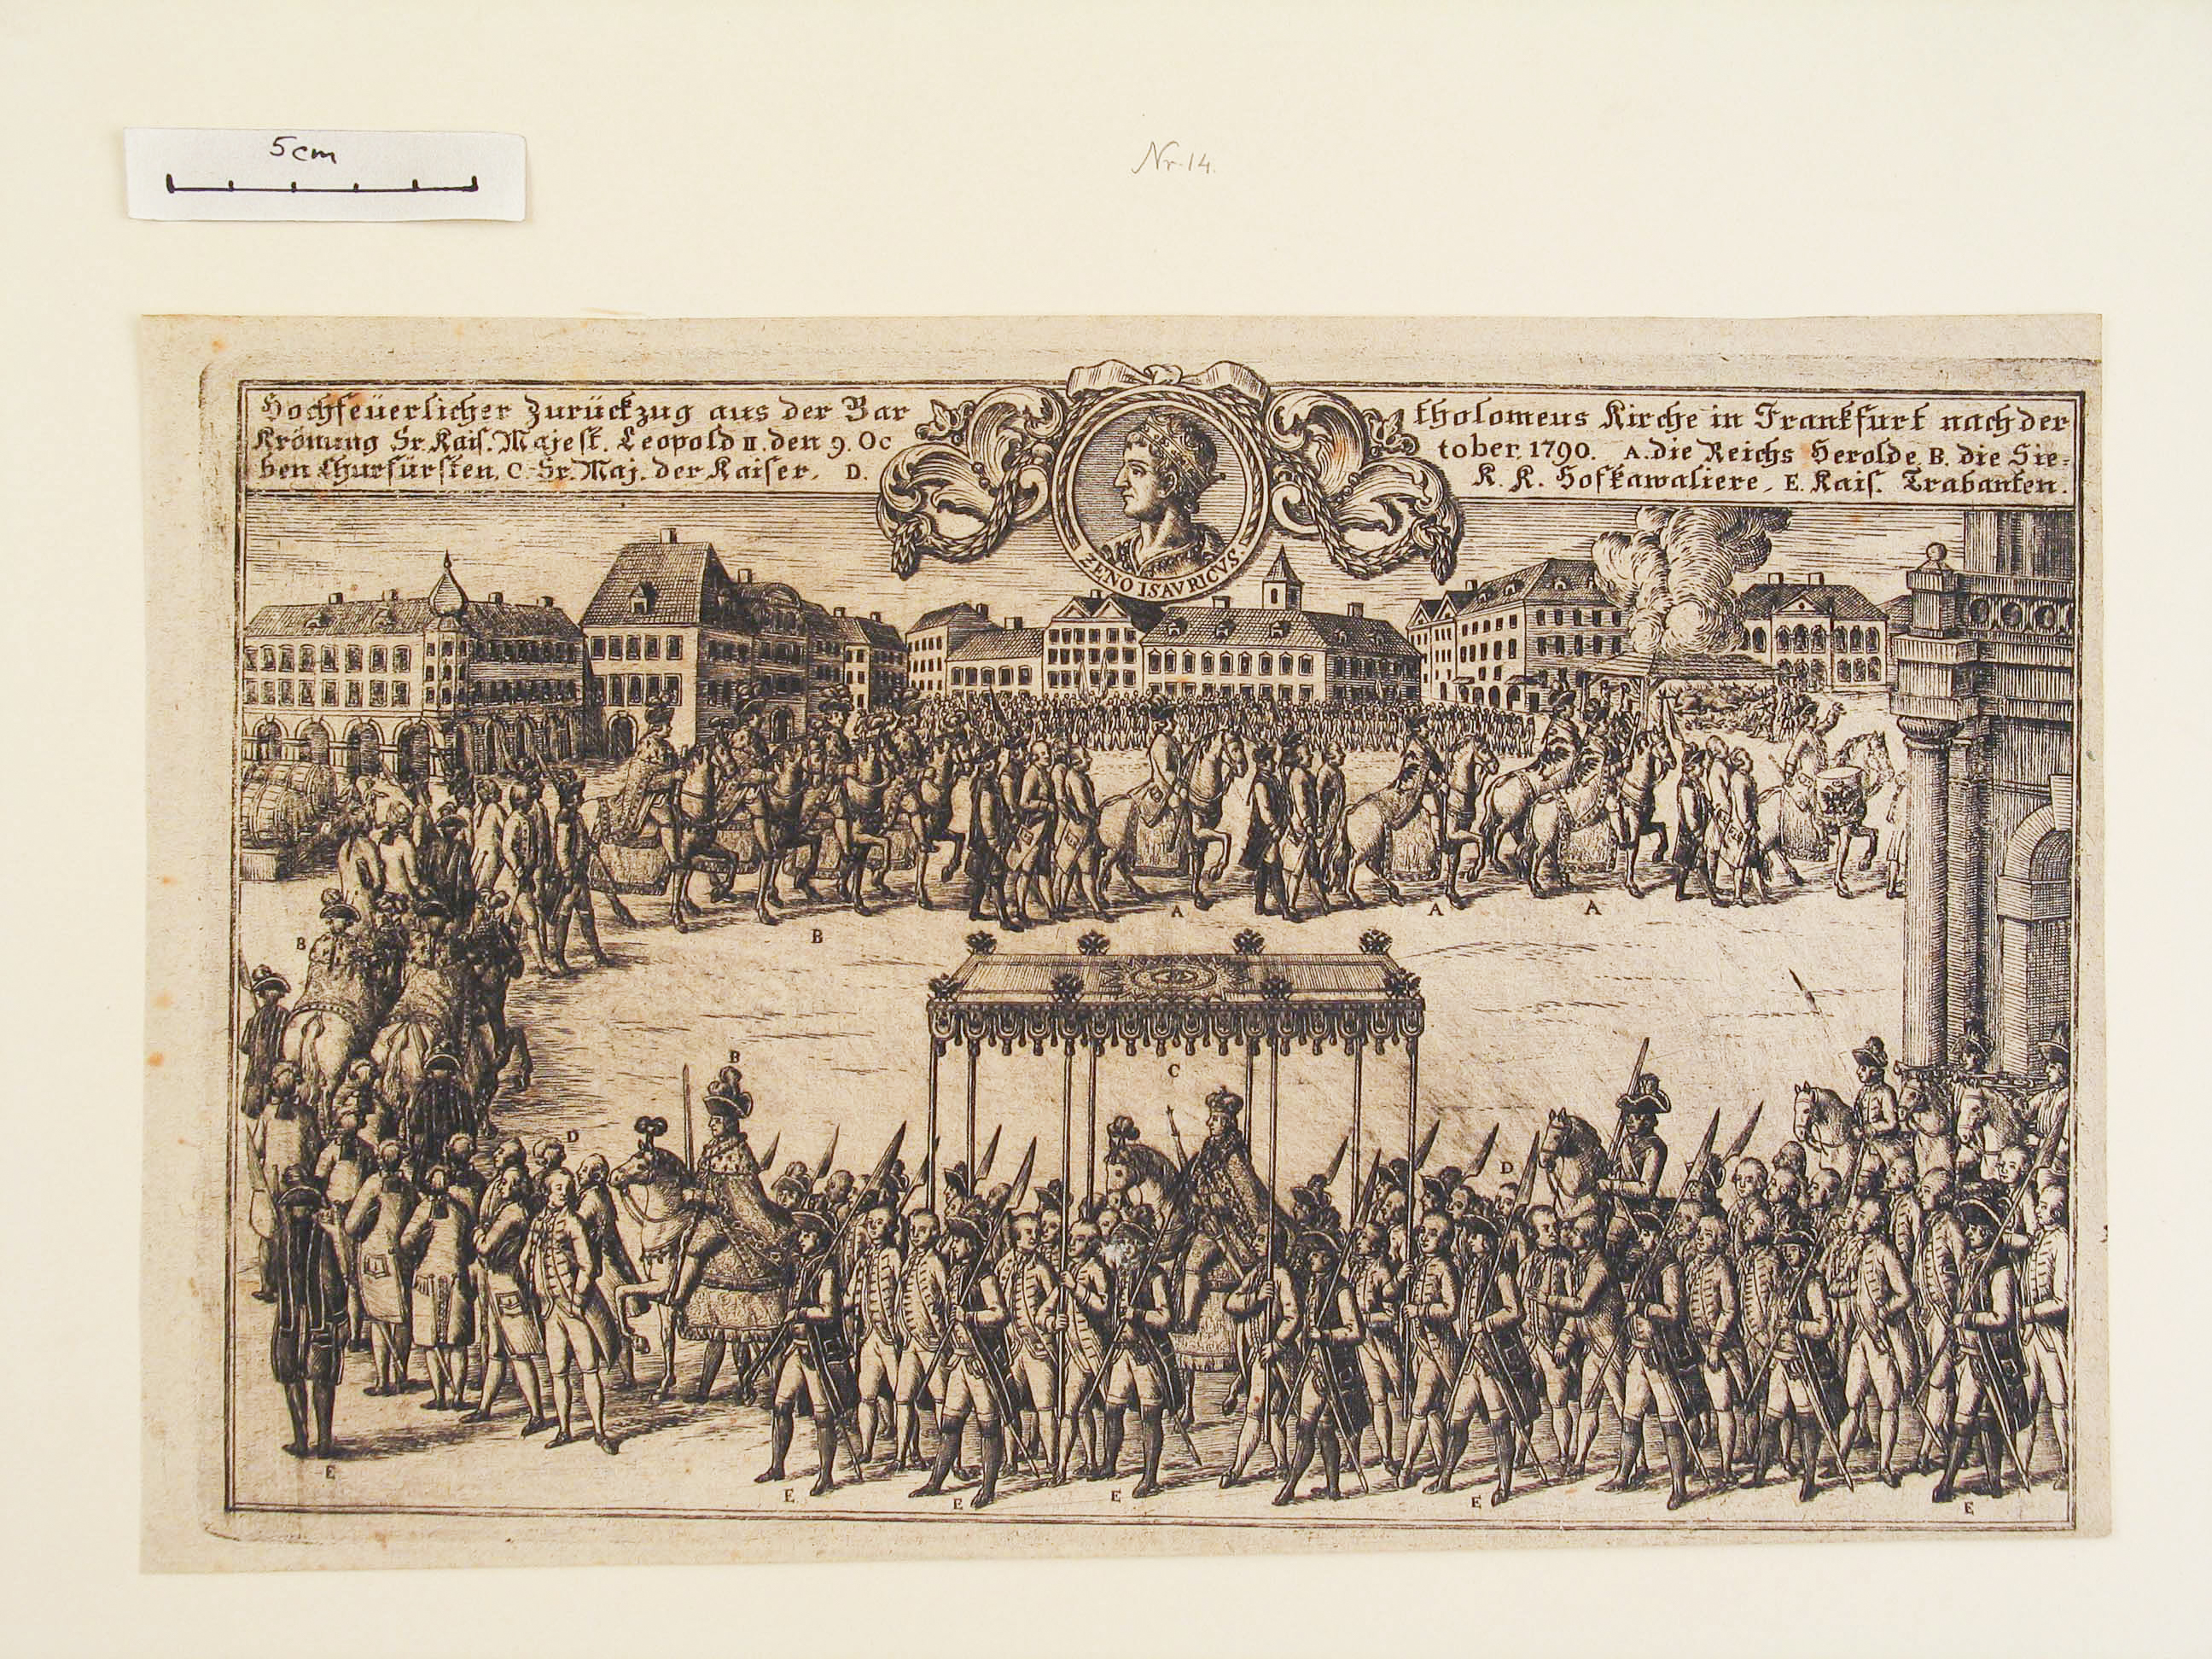 5cm
Nr. 14.
Hochfeüerlicher Zurückzug aus der Bar tholomeus Kirche in Frankfurt nach der
Krönung Sr. Kais. Majest. Leopold II. den 9. Oc tober 1790. A. die Reichs Herolde B. die Sie=
ben Churfürsten, C. Sr. Maj. der Kaiser, D. K. K. Hofkawaliere, E. Kais. Trabanten.
ZENO ISAVRICVS
A
A
A
B
B
B
C
D
D
E
E
E
E
E
E